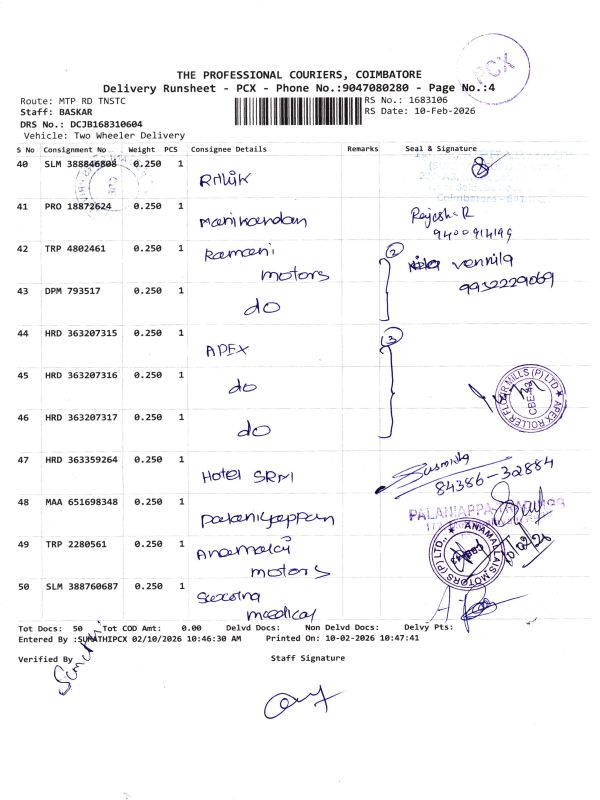 PCX
THE PROFESSIONAL COURIERS, COIMBATORE
Delivery Runsheet - PCX - Phone No.:9047080280 - Page No.:4
Route: MTP RD TNSTC
RS No.: 1683106
Staff: BASKAR
RS Date: 10-Feb-2026
DRS No.: DCJB168310604
Vehicle: Two Wheeler Delivery
S No Consignment No Weight PCS Consignee Details Remarks Seal & Signature
40 SLM 388846808 0.250 1
Coimbatore
41 PRO 18872624 0.250 1 Manikandan Rajesh R
42 TRP 4802461 0.250 1 Ramani motors 2 vennila
9932229069
43 DPM 793517 0.250 1 do
44 HRD 363207315 0.250 1 APEX 3
45 HRD 363207316 0.250 1 do
APEX ROLLER FLOUR MILLS (P) LTD
46 HRD 363207317 0.250 1 do
47 HRD 363359264 0.250 1 Hotel SRM Susmitha
84386-32884
48 MAA 651698348 0.250 1 Palaniyappan
PALANIAPPA
49 TRP 2280561 0.250 1 Anamalai motors
ANAMALLAIS MOTORS (P) LTD.,
10/02/26
50 SLM 388760687 0.250 1 medical
Tot Docs: 50 Tot COD Amt: 0.00 Delvd Docs: Non Delvd Docs: Delvy Pts:
Entered By :SUMATHIPCX 02/10/2026 10:46:30 AM Printed On: 10-02-2026 10:47:41
Verified By Staff Signature